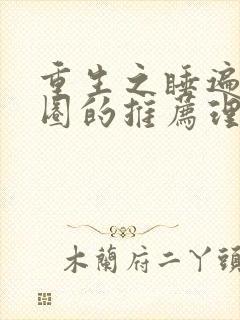 重生之睡遍
圈的推薦理
木蘭府二丫頭